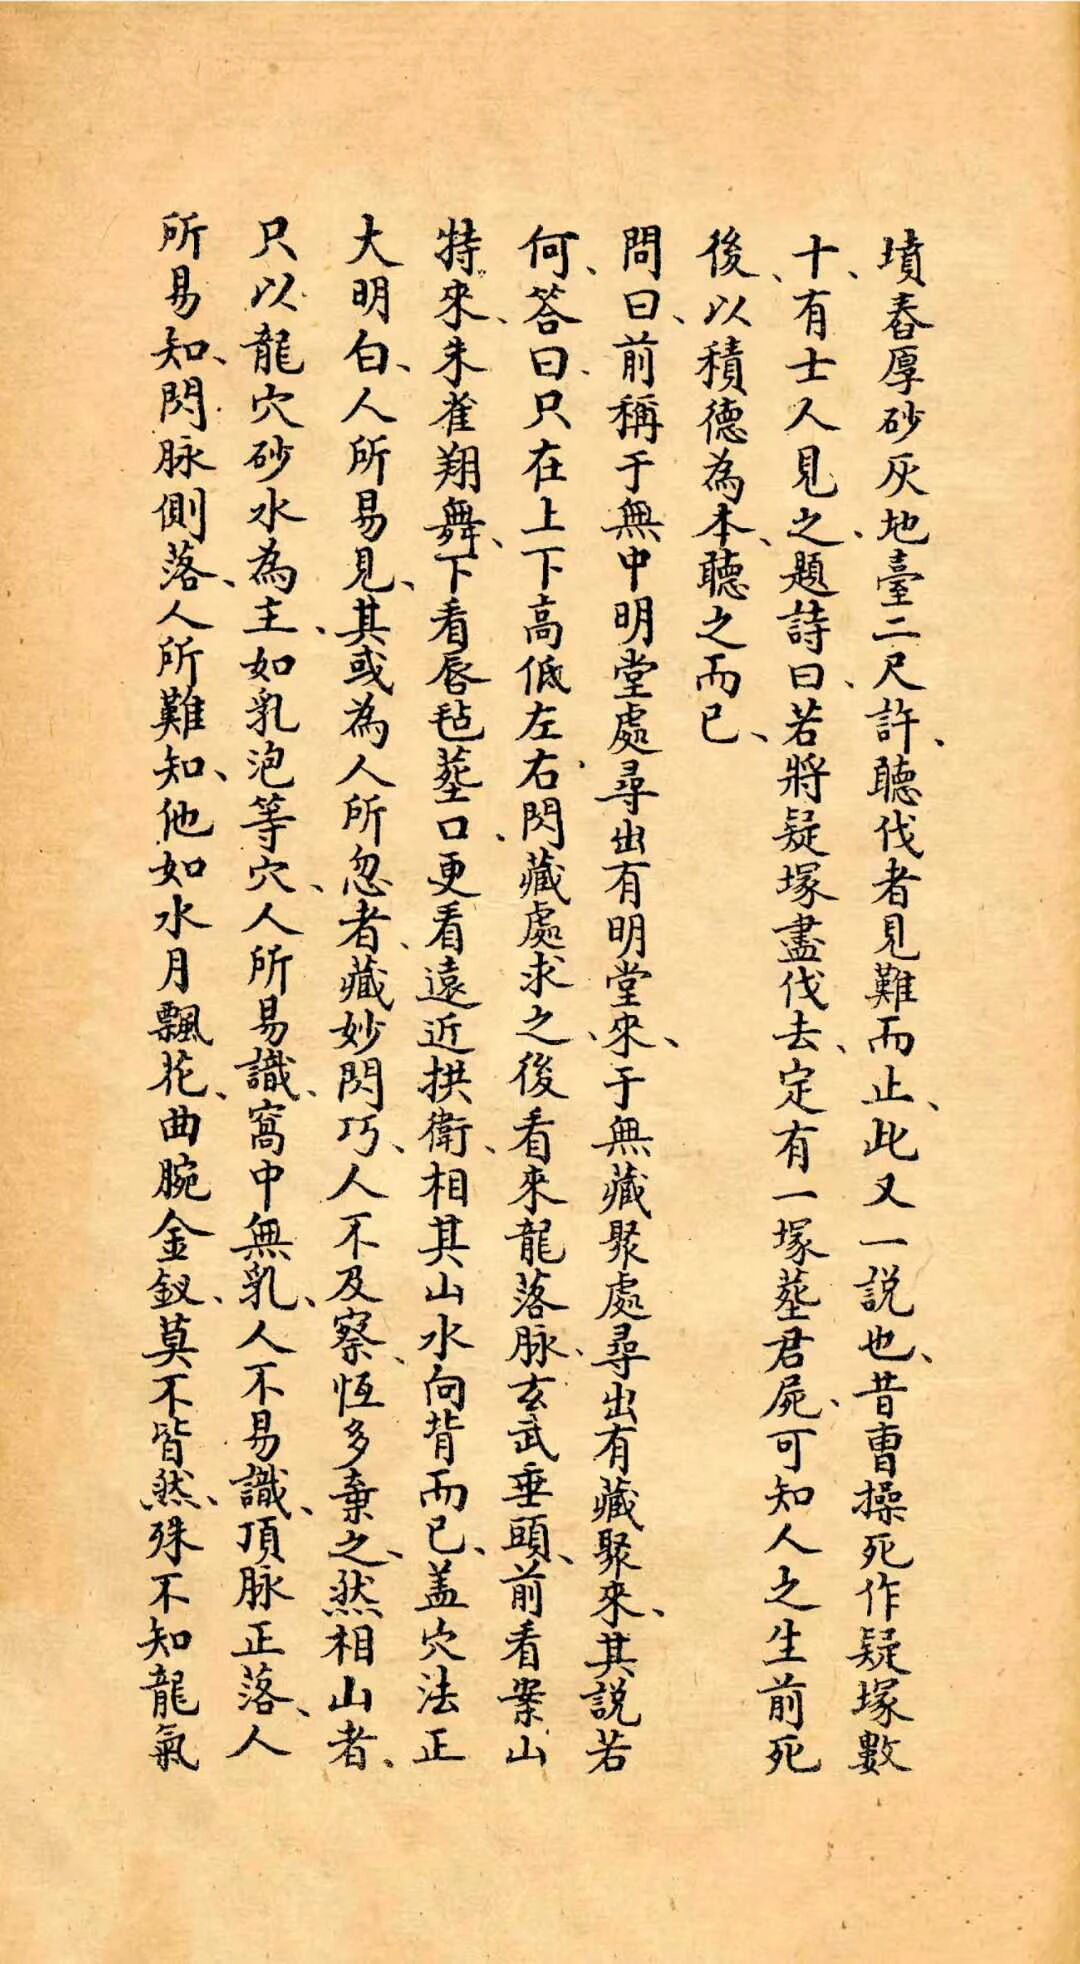 墳舂厚砂灰地臺二尺許、聽伐者見難而止、此又一說也、昔曹操死作疑塚數
十、有士人見之、題詩曰、若將疑塚盡伐去、定有一塚塟君屍、可知人之生前死
後、以積德為本、聽之而已、
問曰、前稱于無中明堂處尋出有明堂來、于無藏聚處尋出有藏聚來、其說若
何、答曰、只在上下高低左右閃藏處求之、後看來龍落脉、玄武垂頭、前看案山
特來、朱雀翔舞、下看唇毡塟口、更看遠近拱衛、相其山水向背而已、盖穴法正
大明白、人所易見、其或為人所忽者、藏妙閃巧、人不及察、恆多棄之、然相山者、
只以龍穴砂水為主、如乳泡等穴、人所易識、窩中無乳、人不易識、頂脉正落、人
所易知、閃脉側落、人所難知、他如水月飄花、曲腕金釵、莫不皆然、殊不知龍氣